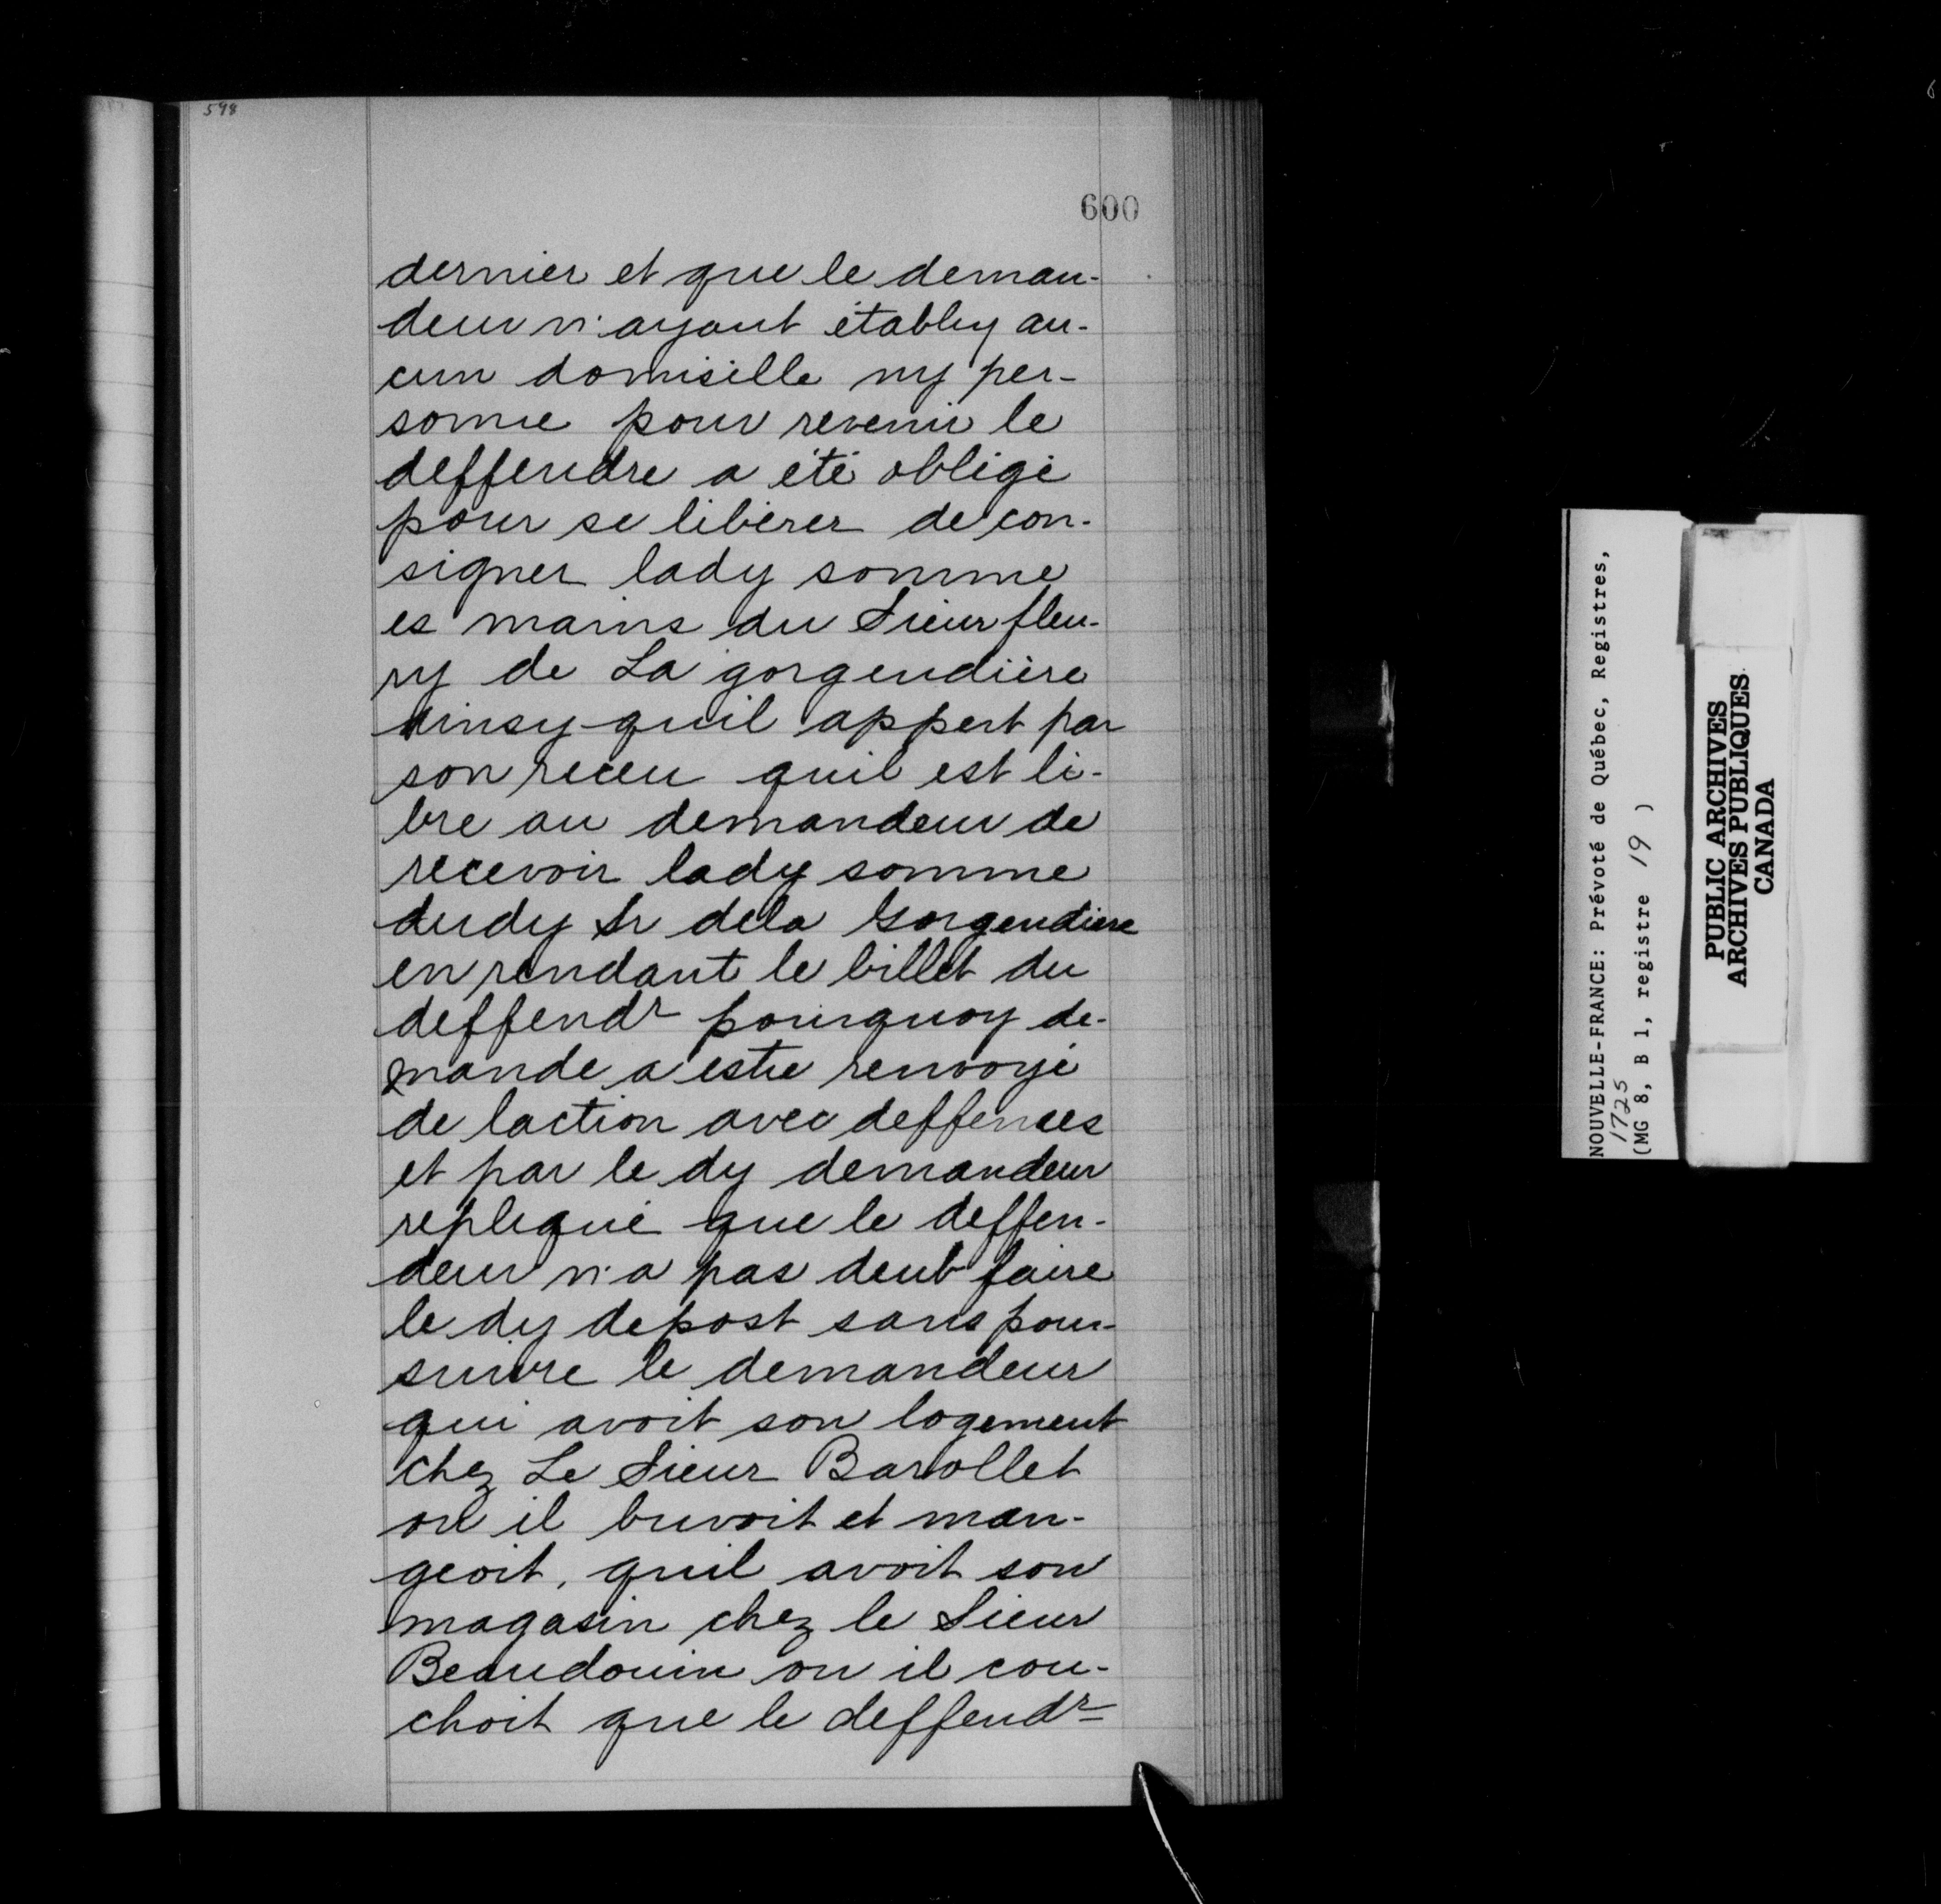 598
600
dernier et que le deman-
deur n'ayant établey au-
cun domisille ny per-
sonne pour revenir le
deffendre a été obligé
pour se libérer de con-
signer lady somme
es mains du Sieur fleu-
ry de La gorgendière
ainsy quil appert par
son receu quil est li-
bre au demandeur de
recevoir lady somme
dudy Sr dela Gorgendiere
en rendant le billet du
deffendr pourquoy de-
mande a estre renvoyé
de laction avec deffences
et par le dy demandeur
repliqué que le deffen-
deur n'a pas deub faire
le dy depost sans pour-
suivre le demandeur
qui avoit son logement
chez Le Sieur Barollet
ou il buvoit et man-
geoit, quil avoit son
magasin chez le Sieur
Beaudouin ou il cou-
choit que le deffendr
NOUVELLE-FRANCE: Prévoté de Québec, Registres,
1725
(MG 8, B 1, registre 19 )
PUBLIC ARCHIVES
ARCHIVES PUBLIQUES
CANADA